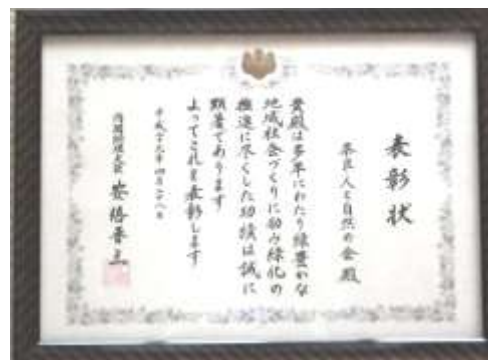 表彰状
奈良人と自然の会殿
貴殿は多年にわたり緑豊かな
地域社会づくりに励み緑化の
推進に尽くした功績は誠に
顕著であります
よってこれを表彰します
平成二十九年四月二十八日
内閣総理大臣 安倍晋三